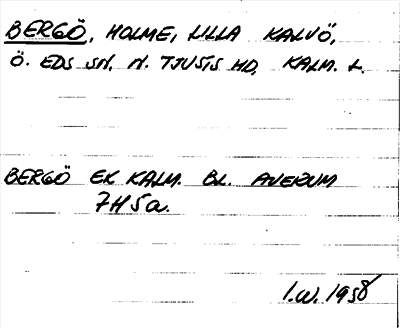 BERGÖ, HOLME, LILLA KALVÖ,
Ö. EDS SN. N. TJUSTS HD, KALM. L.
BERGÖ EK KALM. BL. AVERUM
7H5a.
I.W. 1958